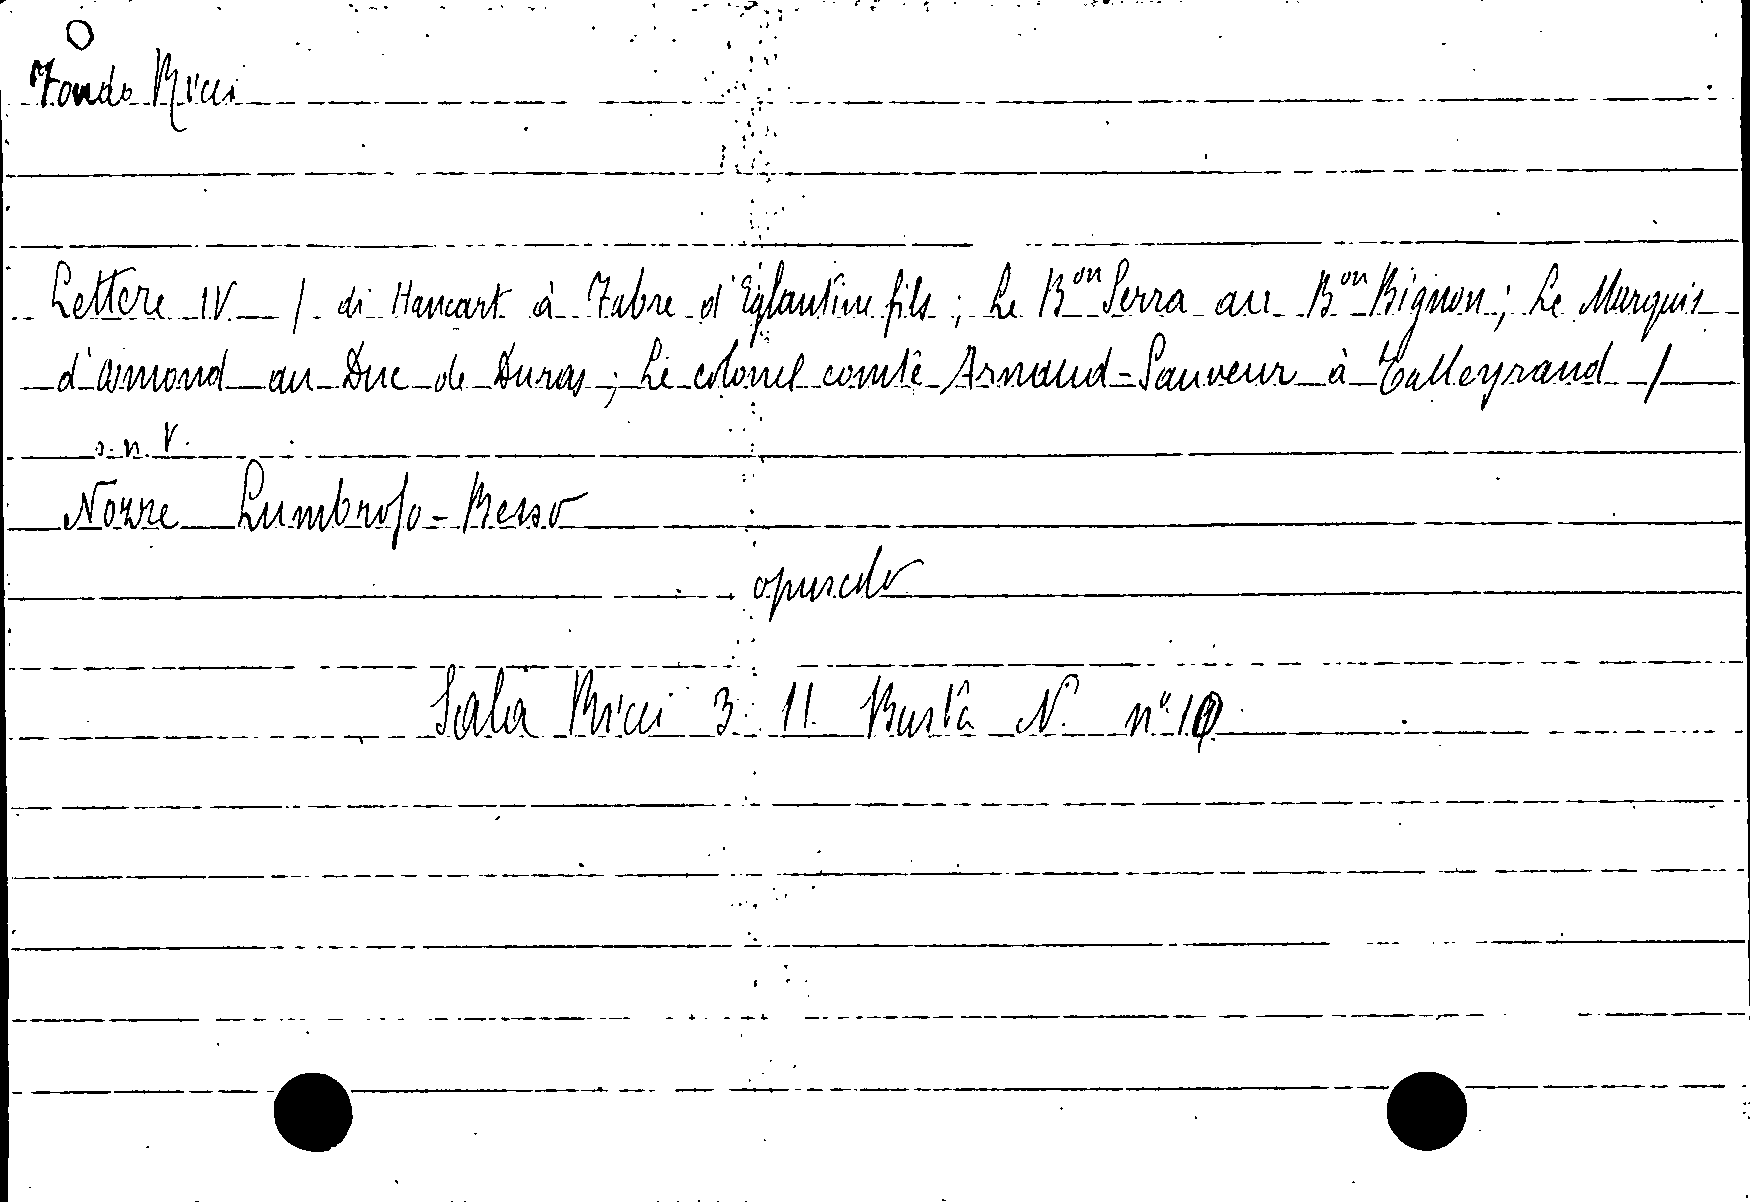 Fondo Ricci
Lettere IV / di Hancart à Fabre d'Eglantine fils; Le Bon Serra au Bon Bignon; Le Marquis
d'Osmond au Duc de Duras; Le colonel comte Arnaud-Sauveur à Talleyrand /
s.n.t.
Nozze Lumbroso-Besso
opuscolo
Sala Ricci 3 11 Busta N. nº 10